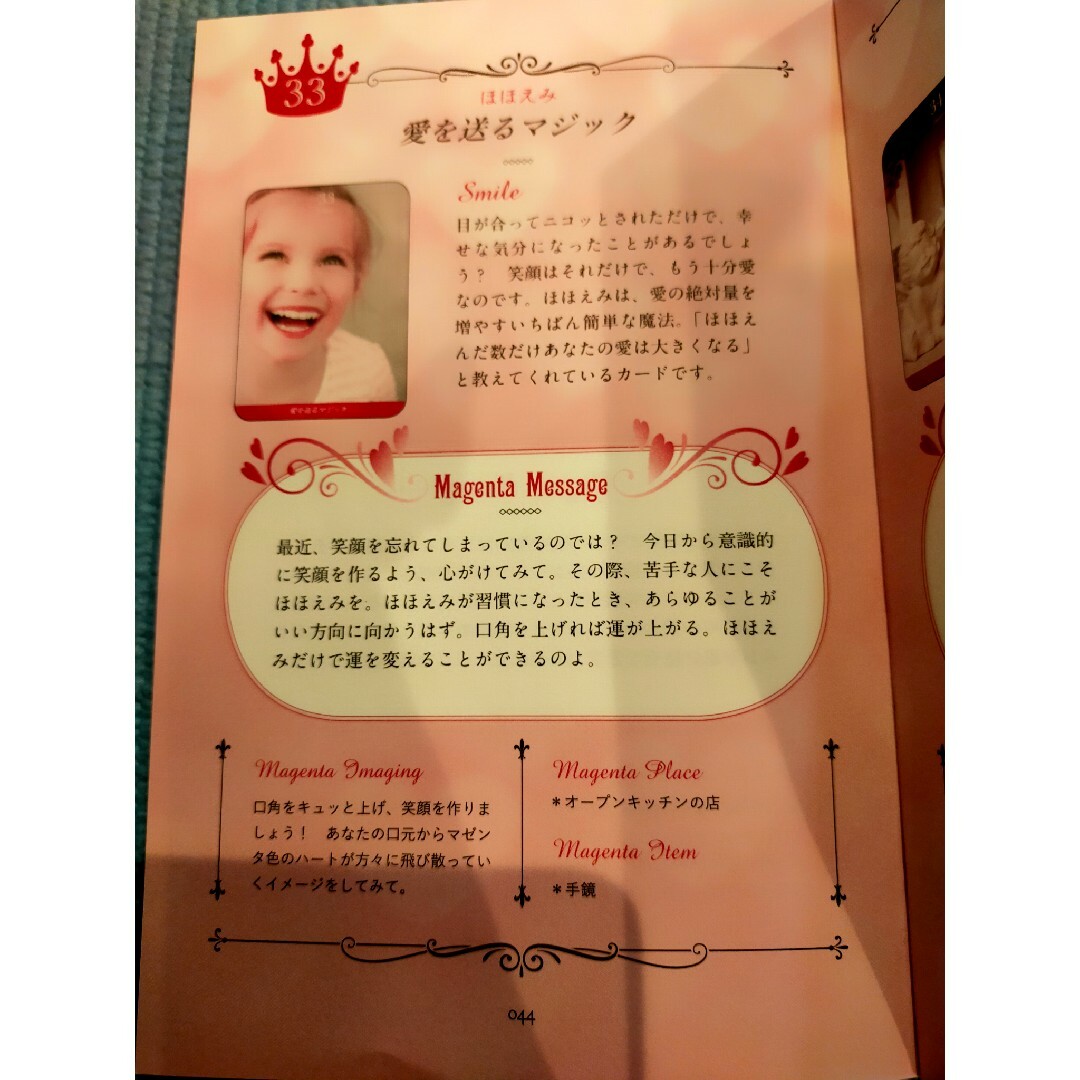 33
ほほえみ
愛を送るマジック
Smile
目が合ってニコッとされただけで、幸
せな気分になったことがあるでしょ
う？　笑顔はそれだけで、もう十分愛
なのです。ほほえみは、愛の絶対量を
増やすいちばん簡単な魔法。「ほほえ
んだ数だけあなたの愛は大きくなる」
と教えてくれているカードです。
33
愛を送るマジック
Magenta Message
最近、笑顔を忘れてしまっているのでは？　今日から意識的
に笑顔を作るよう、心がけてみて。その際、苦手な人にこそ
ほほえみを。ほほえみが習慣になったとき、あらゆることが
いい方向に向かうはず。口角を上げれば運が上がる。ほほえ
みだけで運を変えることができるのよ。
Magenta Imaging
口角をキュッと上げ、笑顔を作りま
しょう！　あなたの口元からマゼン
タ色のハートが方々に飛び散ってい
くイメージをしてみて。
Magenta Place
＊オープンキッチンの店
Magenta Item
＊手鏡
044